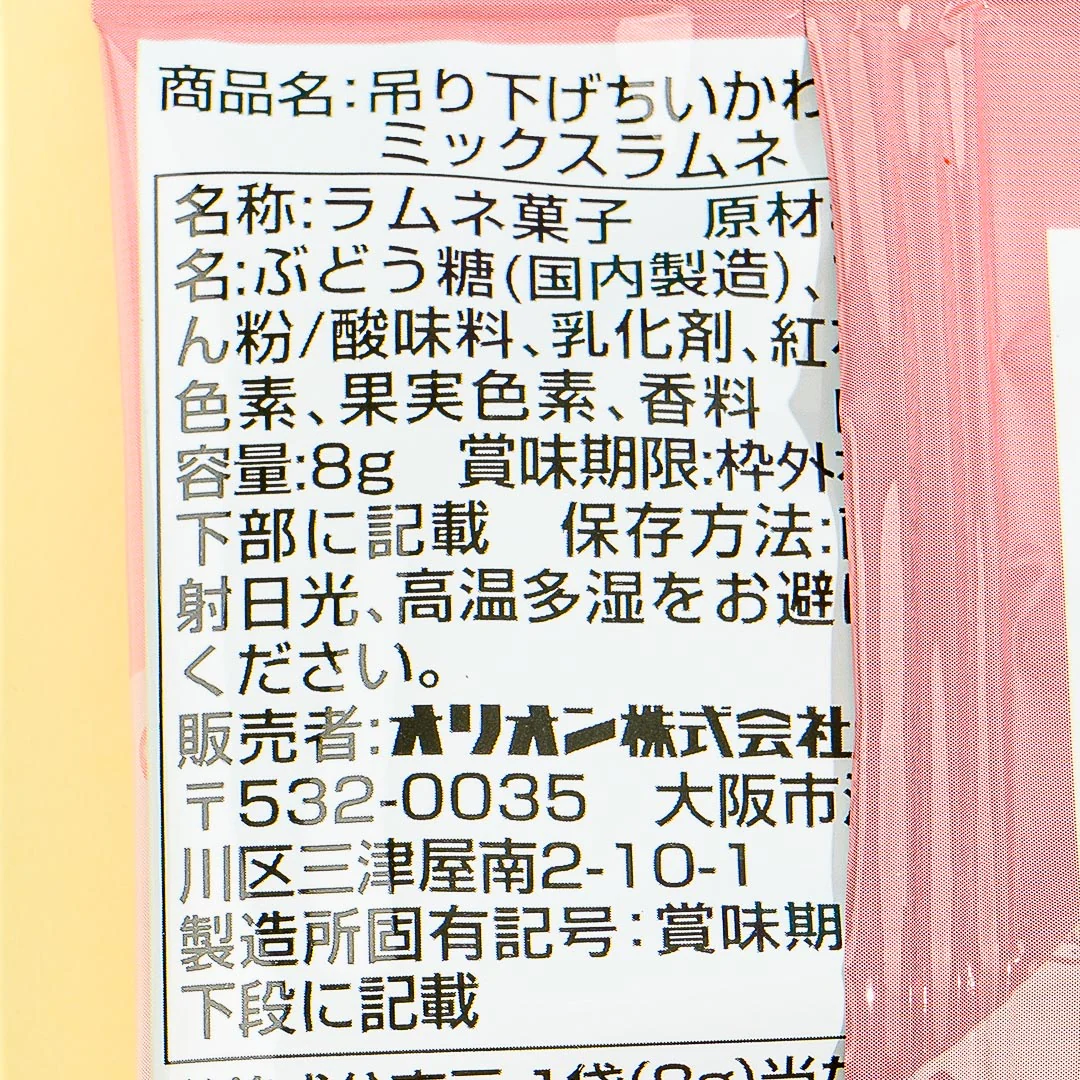 商品名:吊り下げちいかわ
ミックスラムネ
名称:ラムネ菓子 原材
名:ぶどう糖(国内製造)、
ん粉/酸味料、乳化剤、紅
色素、果実色素、香料
容量:8g 賞味期限:枠外
下部に記載 保存方法:
射日光、高温多湿をお避
ください。
販売者:オリオン株式会社
〒532-0035 大阪市
川区三津屋南2-10-1
製造所固有記号:賞味期
下段に記載
1袋(8g)当た